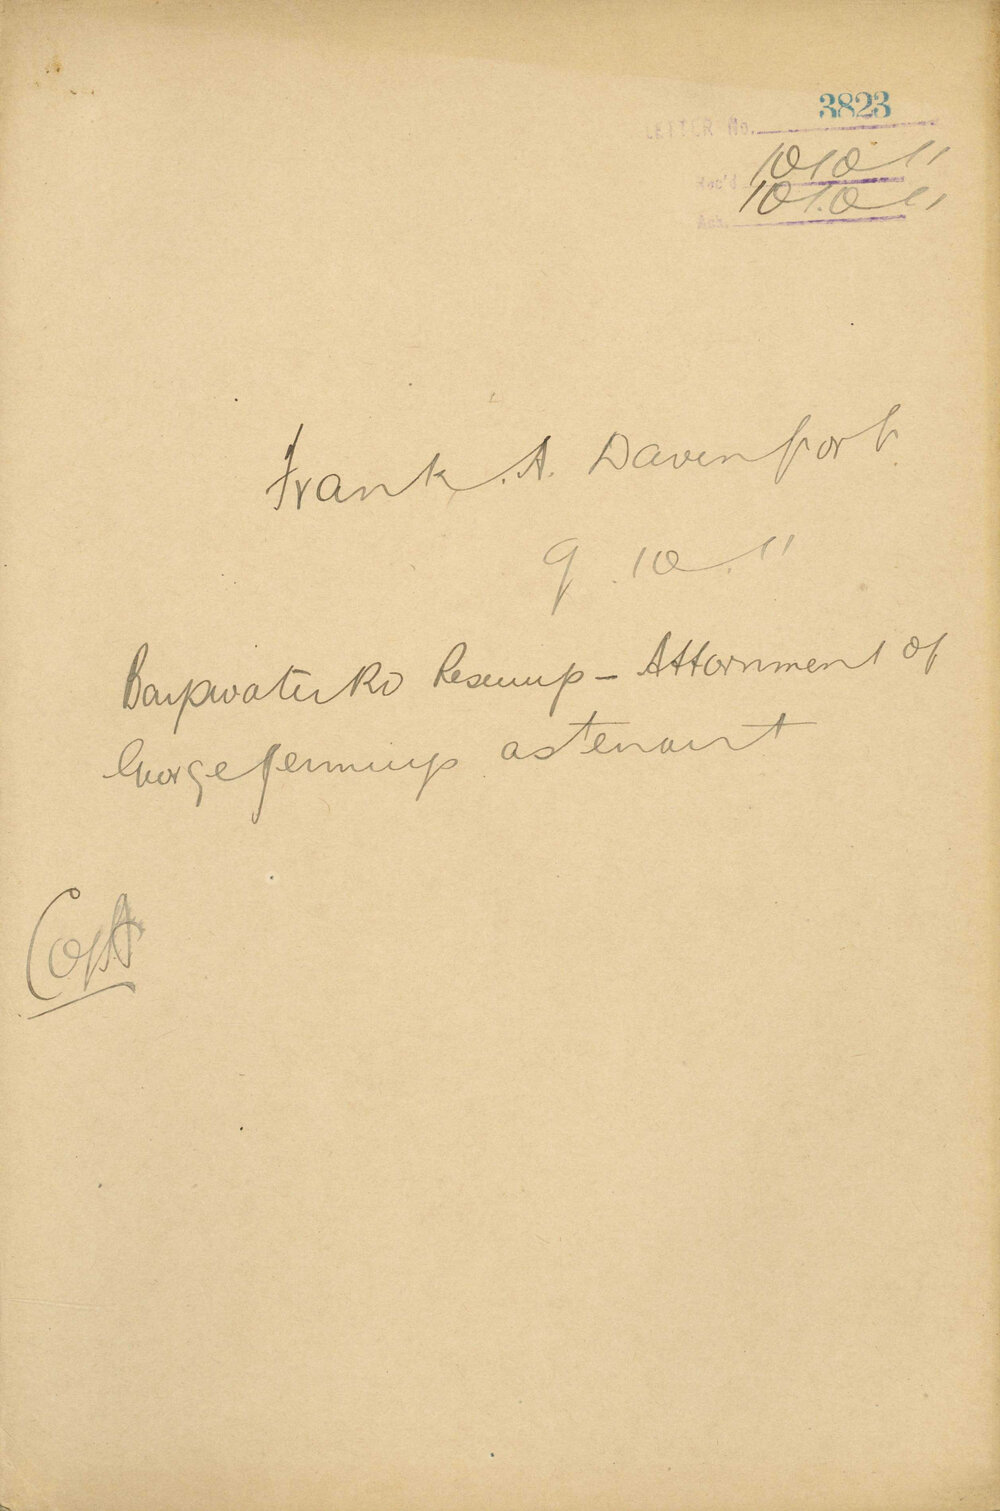 3823
LETTER No.
Rec'd 10/10/11
Ack. 10/10/11
Frank. A. Davenport.
9.10.11
Bayswater Rd Resump - Attornment of
George Jennings as tenant